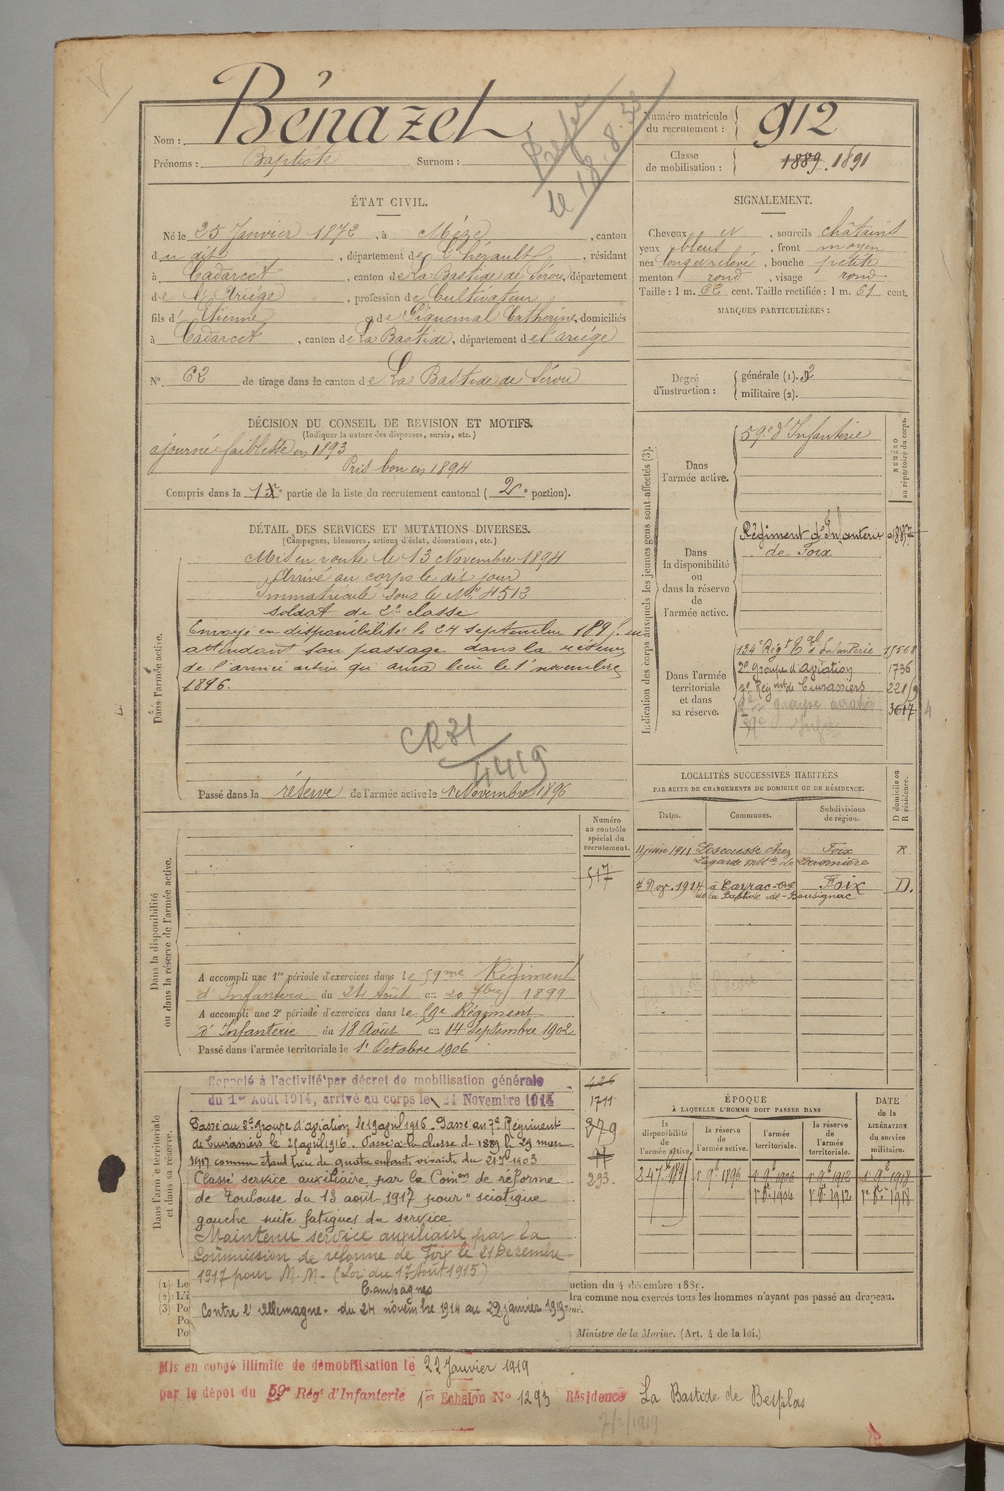 Nom : Bénazet
Prénoms : Baptiste Surnom :
le 18.8.32
Numéro matricule du recrutement : 912
Classe de mobilisation : 1889. 1891
ÉTAT CIVIL.
Né le 25 Janvier 1872, à Mèze, canton
du dit, département de l'hérault, résidant
à Cadarcet, canton de La Bastide de Sérou, département
de l'Ariège, profession de Cultivateur
fils d'Etienne et de Piquemal Catherine, domiciliés
à Cadarcet, canton de La Bastide, département de l'ariège
N° 62 de tirage dans le canton de La Bastide de Sérou
SIGNALEMENT.
Cheveux et, sourcils châtains
yeux bleus, front moyen
nez long et relevé, bouche petite
menton rond, visage rond
Taille : 1 m. 62 cent. Taille rectifiée : 1 m. 61 cent.
MARQUES PARTICULIÈRES :
Degré d'instruction : générale (1). 2
militaire (2).
DÉCISION DU CONSEIL DE REVISION ET MOTIFS.
(Indiquer la nature des dispenses, sursis, etc.)
ajourné faiblesse en 1893
Pris bon en 1894
Compris dans la 1re partie de la liste du recrutement cantonal (2e portion).
DÉTAIL DES SERVICES ET MUTATIONS DIVERSES.
(Campagnes, blessures, actions d'éclat, décorations, etc.)
Dans l'armée active.
Mis en route le 13 Novembre 1894
Arrivé au corps le dit jour
Immatriculé sous le N° 4513
soldat de 2e classe
Envoyé en disponibilité le 24 septembre 1895 en
attendant son passage dans la réserve
de l'armée active qui aura lieu le 1er novembre
1896.
CR31
4419
Passé dans la réserve de l'armée active le 1 Novembre 1896
Indication des corps auxquels les jeunes gens sont affectés (3).
NUMÉRO au répertoire du corps.
Dans l'armée active.
59e d'Infanterie
Dans la disponibilité ou dans la réserve de l'armée active.
Régiment d'Infanterie
de Foix
Dans l'armée territoriale et dans sa réserve.
134e Régt Eal d'Infanterie
2e groupe d'aviation 1736
7e Régnt de Cuirassiers
groupe aviation 3617
LOCALITÉS SUCCESSIVES HABITÉES
PAR SUITE DE CHANGEMENTS DE DOMICILE OU DE RÉSIDENCE.
Dates. Communes. Subdivisions de région. D domicile ou R résidence.
11 juin 1911 Lescousse chez Foix R
7 Nov. 1914 à Carrac Foix D.
Dans la disponibilité ou dans la réserve de l'armée active.
Numéro au contrôle spécial du recrutement.
517
A accompli une 1re période d'exercices dans le 59me Régiment
d'Infanterie du 24 Août au 20 7bre 1899
A accompli une 2e période d'exercices dans le 59e Régiment
d'Infanterie du 18 Août au 14 Septembre 1902
Passé dans l'armée territoriale le 1er Octobre 1906
Dans l'armée territoriale et dans sa réserve.
Rappelé à l'activité par décret de mobilisation générale
du 1er Août 1914, arrivé au corps le 24 Novembre 1914
Passé au 2e groupe d'aviation le 19 avril 1916. Passé au 7e Régiment
de Cuirassiers le 21 avril 1916. Passé à la classe de 1889 le 29 mars
1917 comme étant père de quatre enfants vivants
Classé service auxiliaire par la Comon de réforme
de Toulouse du 13 août 1917 pour "sciatique
gauche suite fatigues du service
Maintenu service auxiliaire par la
Commission de réforme de Foix le 21 Décembre
1917 pour M.M. (Loi du 17 Août 1915)
Campagnes
Contre l'Allemagne. du 24 novembre 1914 au 22 janvier 1919
1711
279
293.
ÉPOQUE
À LAQUELLE L'HOMME DOIT PASSER DANS
la disponibilité de l'armée active.
la réserve de l'armée active.
l'armée territoriale.
la réserve de l'armée territoriale.
DATE de la LIBÉRATION du service militaire.
uction du 4 décembre 1889.
dra comme non exercés tous les hommes n'ayant pas passé au drapeau.
Ministre de la Marine. (Art. 4 de la loi.)
Mis en congé illimité de démobilisation le 22 Janvier 1919
par le dépôt du 59e Régt d'Infanterie 1er Echelon N° 1293 Résidence La Bastide de Besplas